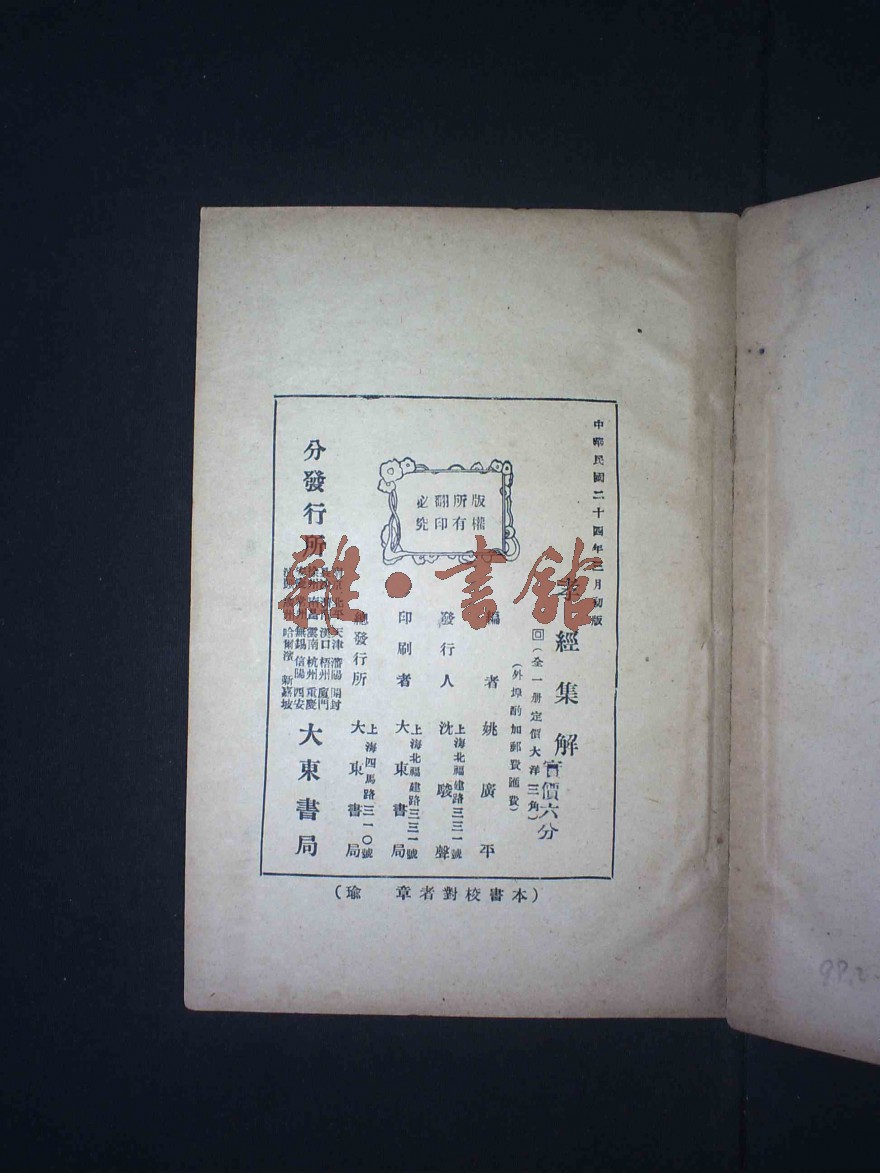 中華民國二十四年三月初版
孝經集解
實價六分
回(全一册定價大洋三角)
(外埠酌加郵費匯費)
版權所有翻印必究
編者 姚廣平
發行人 沈駿聲
上海北福建路三三一號
印刷者 大東書局
上海北福建路三三一號
總發行所 大東書局
上海四馬路三一〇號
分發行所 大東書局
北平 天津 瀋陽 開封
漢口 梧州 廈門
徐州 南昌 雲南 杭州 重慶
常州 無錫 信陽 西安
哈爾濱 新嘉坡
(本書校對者章 瑜)
雜·書館